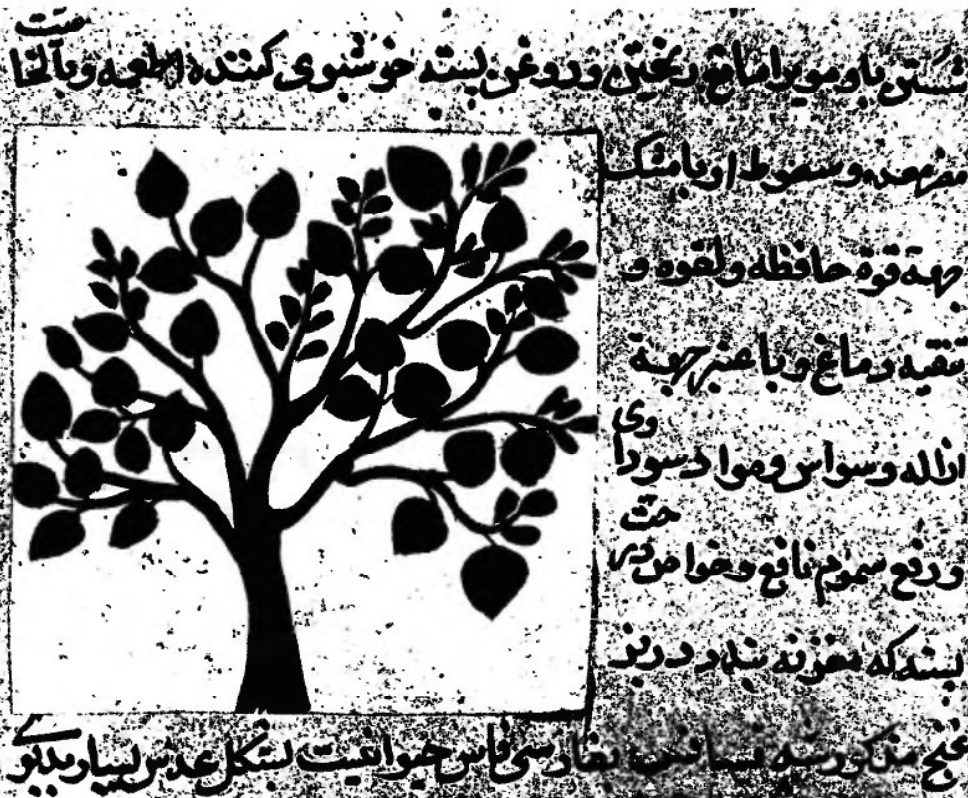 شستن با و مویرا مانع ریختن و روغن پسته خوشبوی کننده اطعمه و بالخا
صیت
مفرحه و سعوط او با مشک
جهة قوة حافظه و لقوه و
تنقیه دماغ و با عنبر جهة
ازاله وسواس و مواد سوداوی
و رفع سموم نافع و خواص در
خت
پسته که مغز نه بندد در بز
غنج مذکور شد بفارسی حیوانیست بشکل عدس بسیار بدبوی